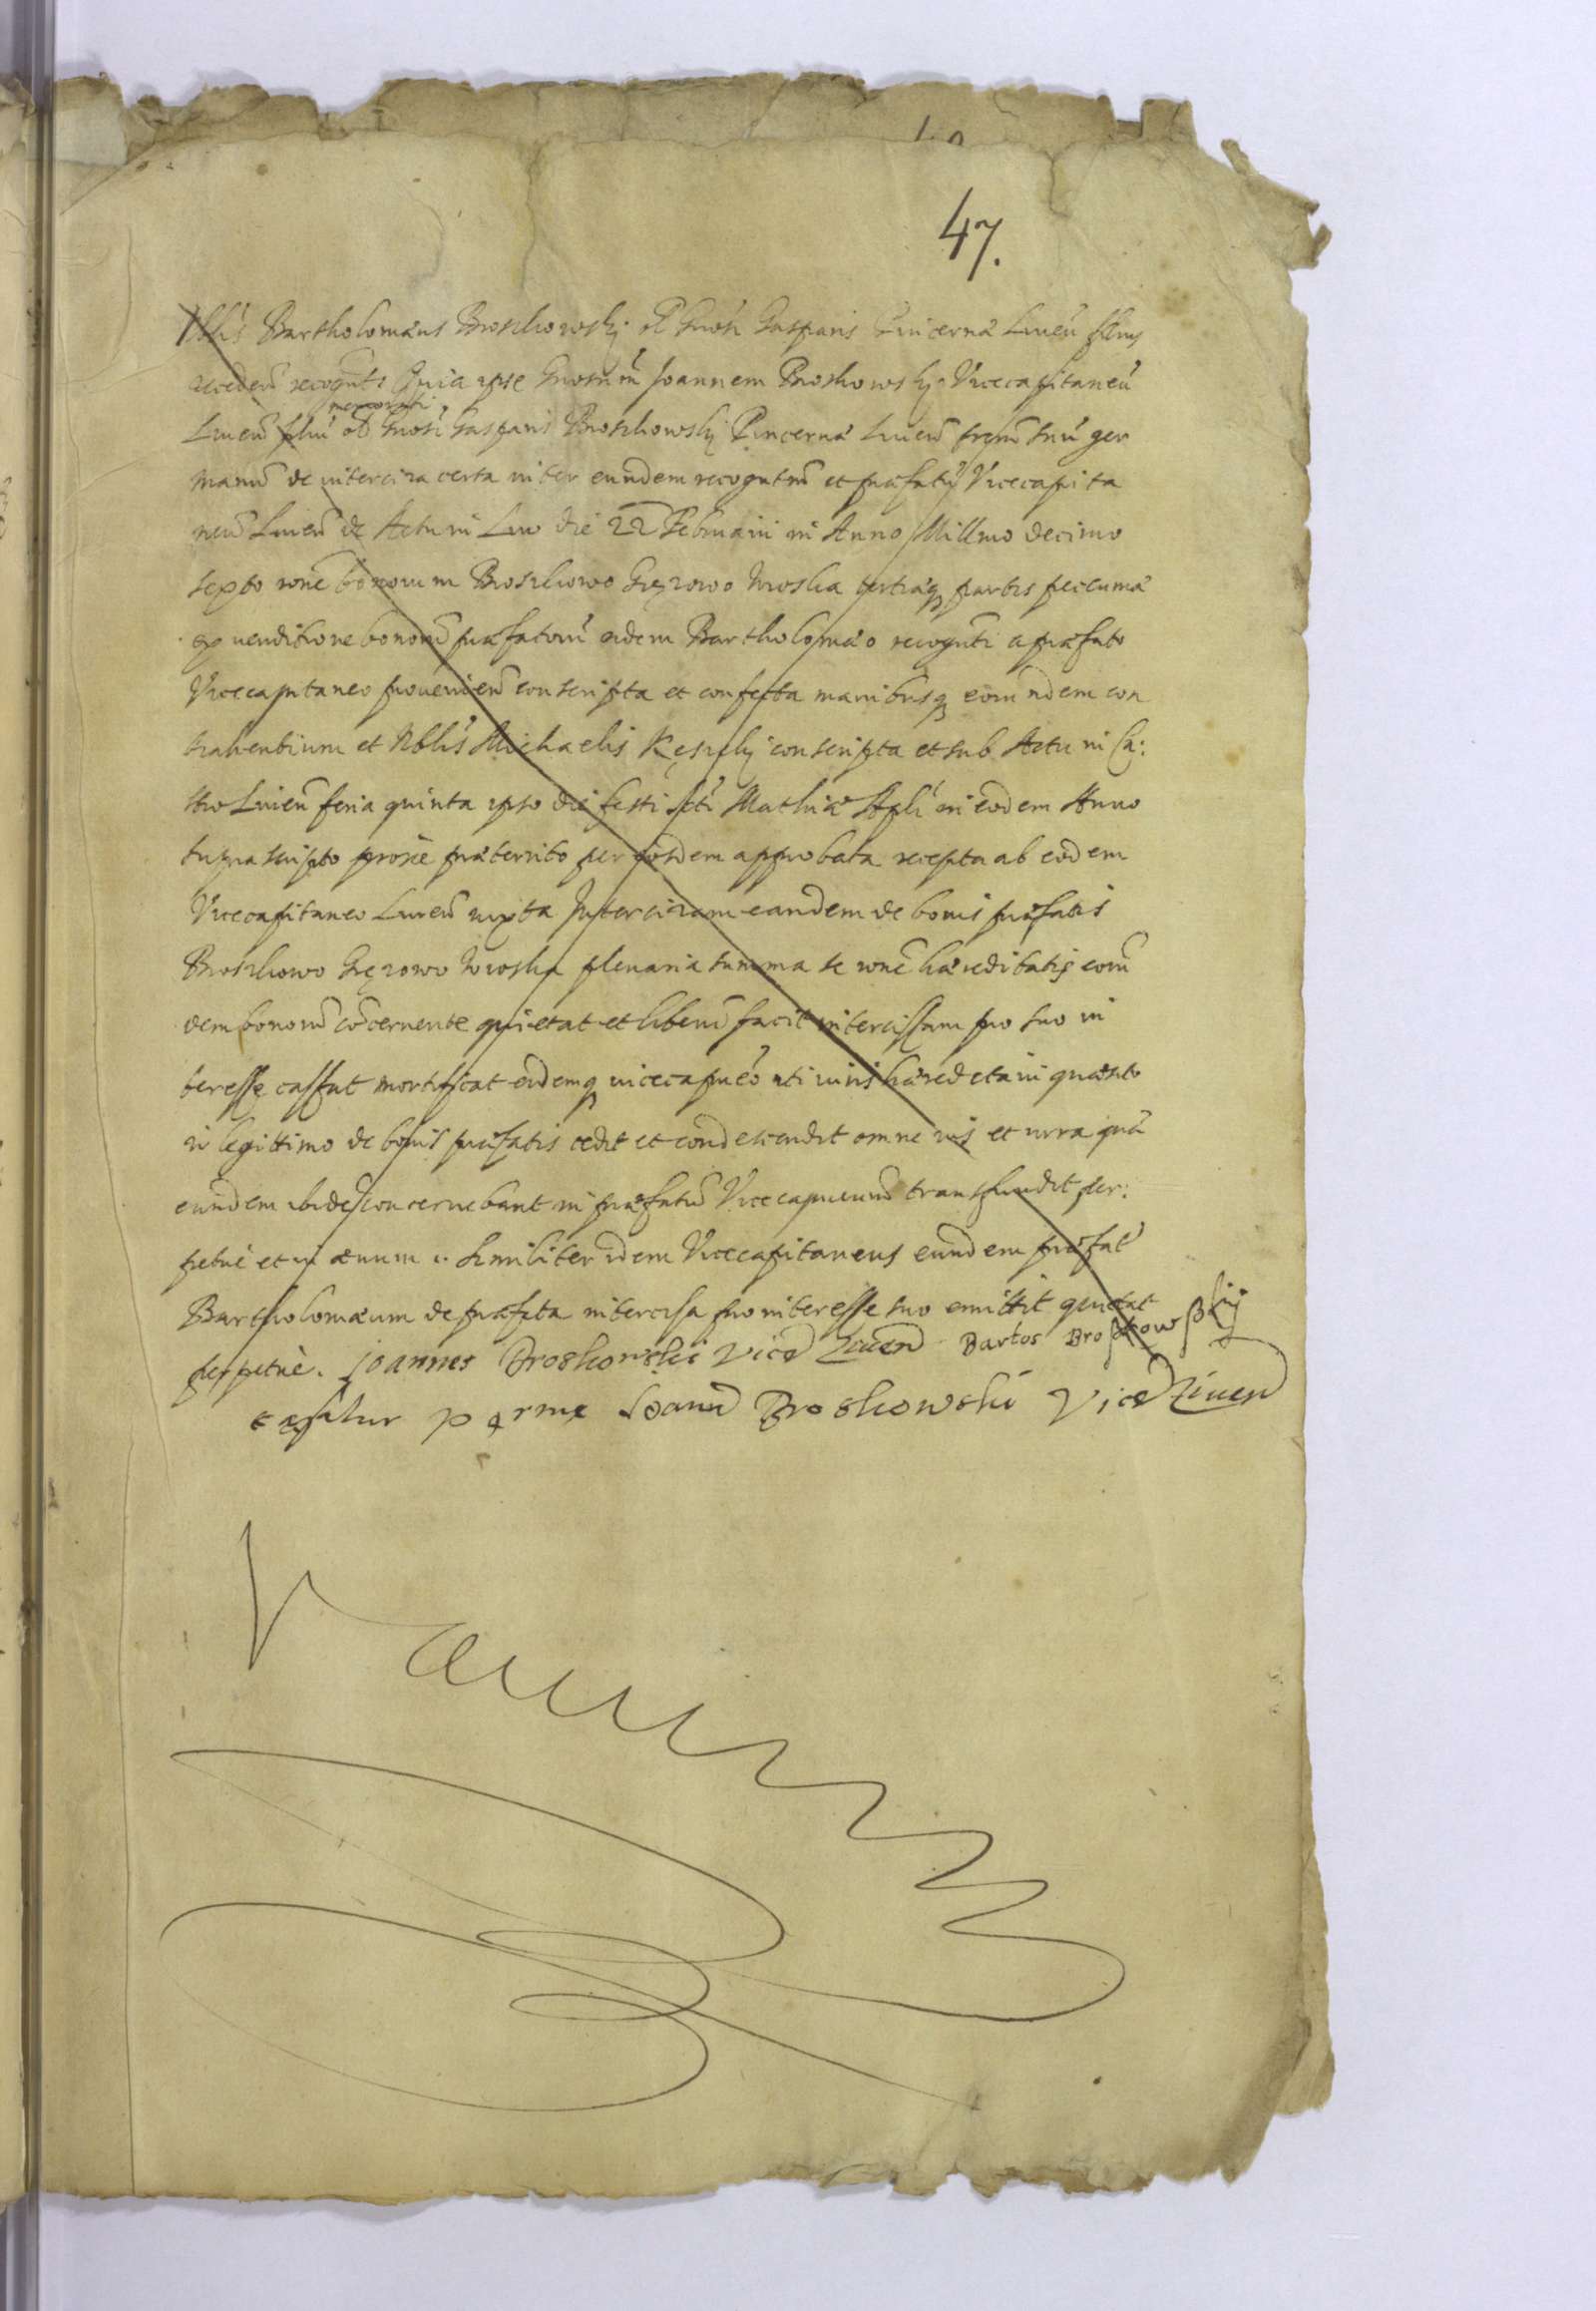 47.
Nblis Bartholomæus Broszkowskj ol Gnosi Gasparis Pincernæ Liuen filius
recedens recognt Quia ipse Gnosum Joannem Broskowskj Vicecapitaneu
memorati
Liuen filiu ol Gnosi Gasparis Broszkowskj Pincernæ Liuen frem suu ger
manu de intercisa certa inter eundem recogntem et præfatu Vicecapita
neu Liuen de Actu in Liw die 22 Februarii in Anno Millmo decimo
sexto rone bonorum Broszkowo Gręzowo Wroska tertiæq partis pecuniæ
ex uenditione bonoru præfatoru eidem Bartholomæo recognti a præfato
Vicecapitaneo proueniens conscripta et confecta manibusq eorundem con
trahentium et Nblis Michaelis Kęszykj conscripta et sub Actu in Ca:
stro Liuen feria quinta ipso die festi scti Mathiæ Apli in eodem Anno
suprascripto proxe præterito per eosdem approbata recepta ab eodem
Vicecapitaneo Liuen iuxta Intercizam eandem de bonis præfatis
Broszkowo Gręzowo Wroska plenaria summa se rone hæreditatis eorun
dem bonoru concernente quietat et liberu facit intercissam pro suo in
teresse cassat mortificat eidemq vicecapneo uti viris hæredetario quæsito
et legittimo de bonis præfatis cedit et condescendit omne ius et iura quæ
eundem ibidem concernebant in præfatu Vicecapneum transfundit per:
petue et in æuum .. Similiter idem Vicecapitaneus eundem præfat
Bartholomæum de præfata intercisa pro interesse suo emittit quietat
perpetue. Joannes Broskowski Viced Liuen Bartos Broszkowskij
cassatur per me Joann Broskowski Viced Liuen